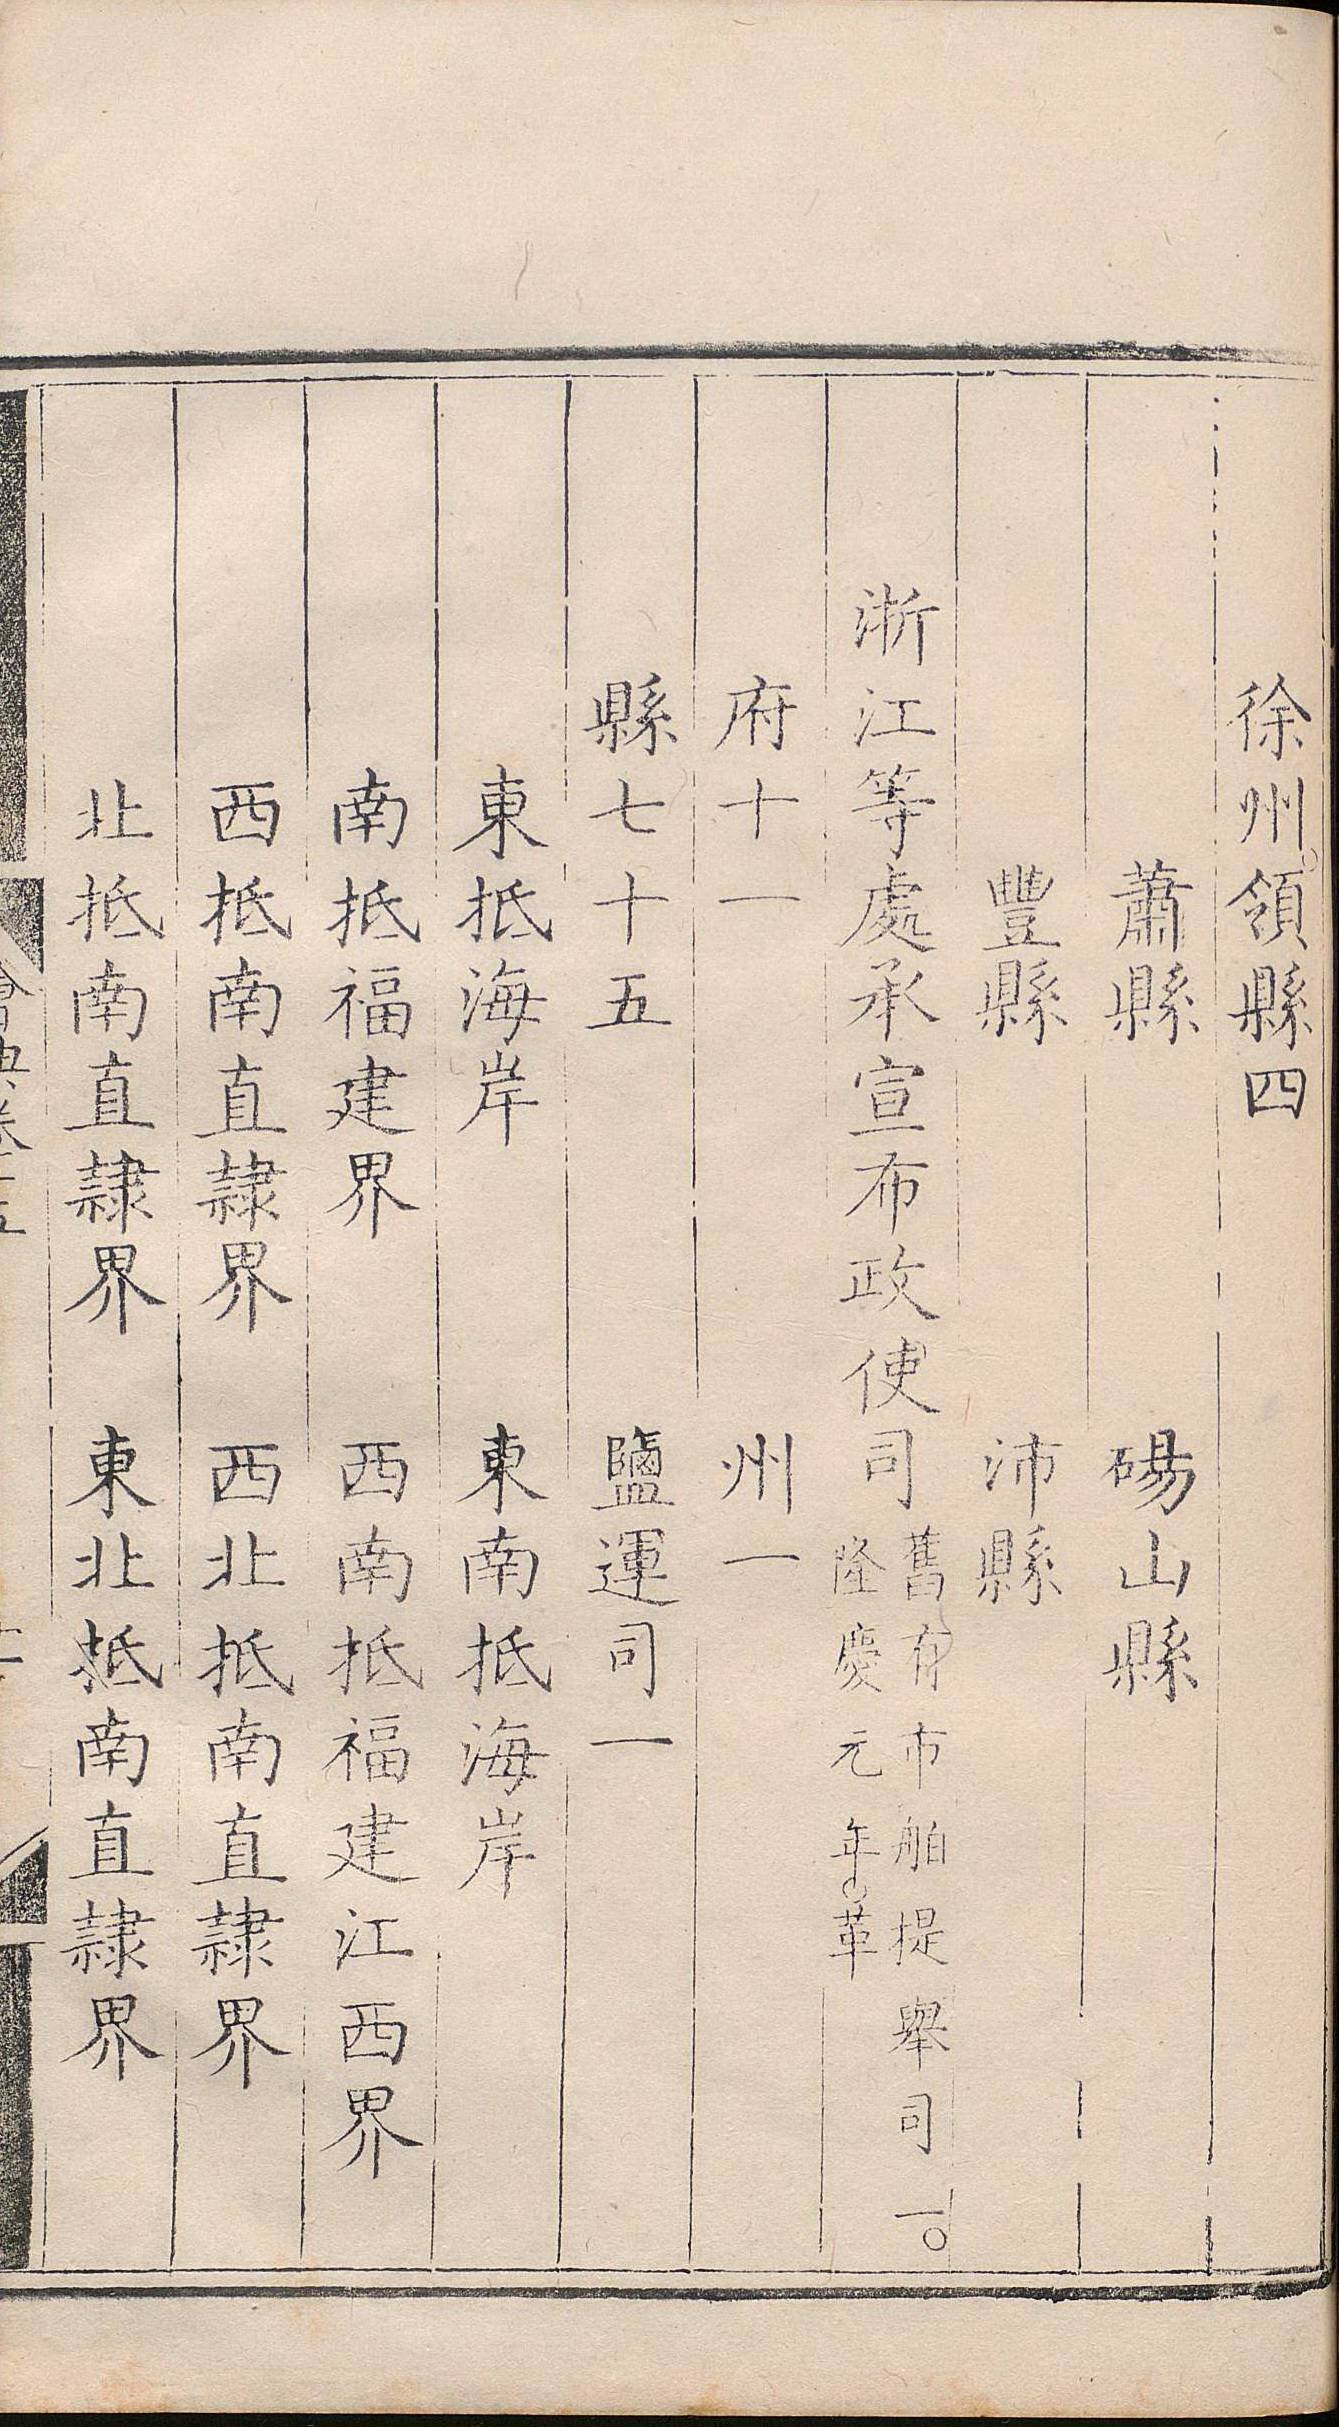 徐州領縣四
蕭縣　碭山縣
豐縣　沛縣
浙江等處承宣布政使司
舊有市舶提舉司一
隆慶元年革
府十一　州一
縣七十五　鹽運司一
東抵海岸　東南抵海岸
南抵福建界　西南抵福建江西界
西抵南直隸界　西北抵南直隸界
北抵南直隸界　東北抵南直隸界